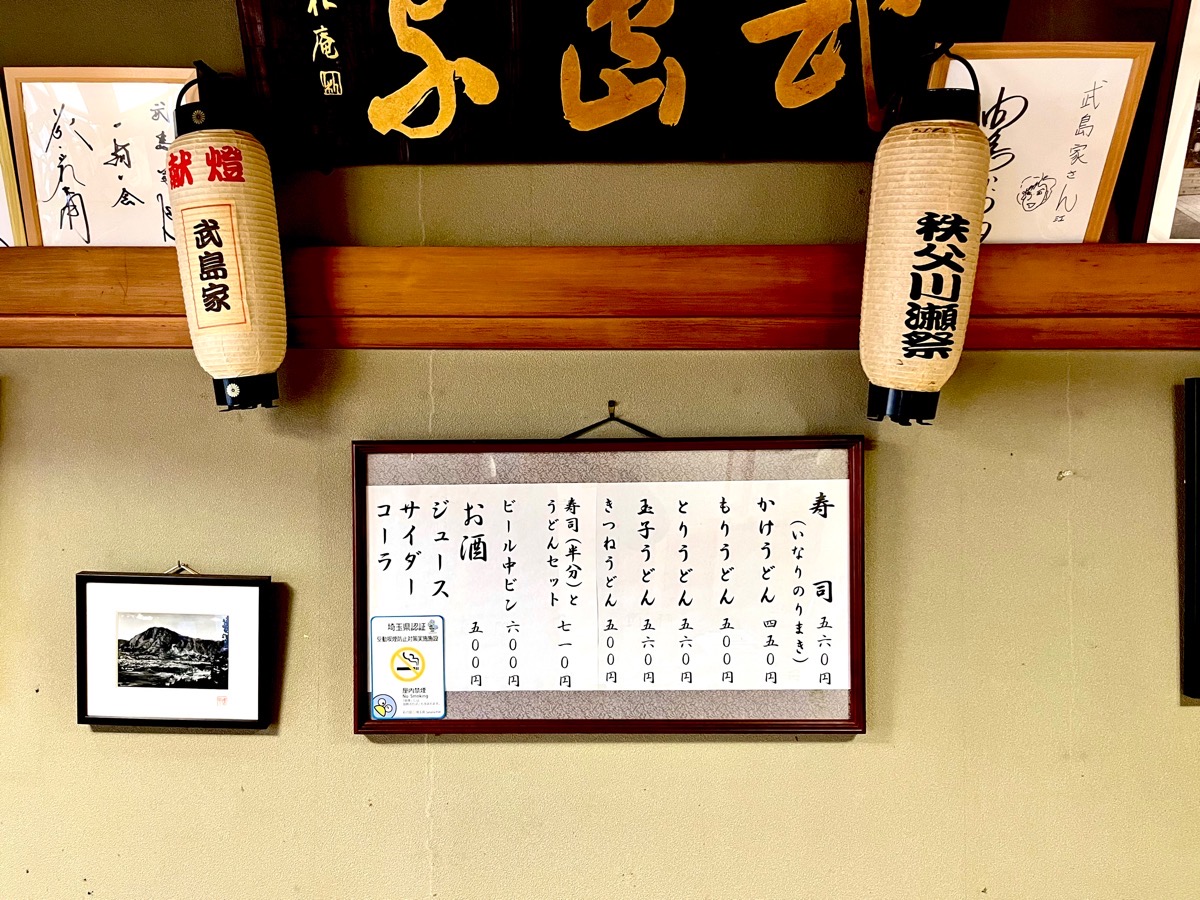 武島家
献燈
武島家
秩父川瀬祭
武島家さん江
寿司 五六〇円
(いなりのりまき)
かけうどん 四五〇円
もりうどん 五〇〇円
とりうどん 五六〇円
玉子うどん 五六〇円
きつねうどん 五〇〇円
寿司(半分)と
うどんセット 七一〇円
ビール中ビン 六〇〇円
お酒 五〇〇円
ジュース
サイダー
コーラ
埼玉県認証
受動喫煙防止対策実施施設
屋内禁煙
No Smoking